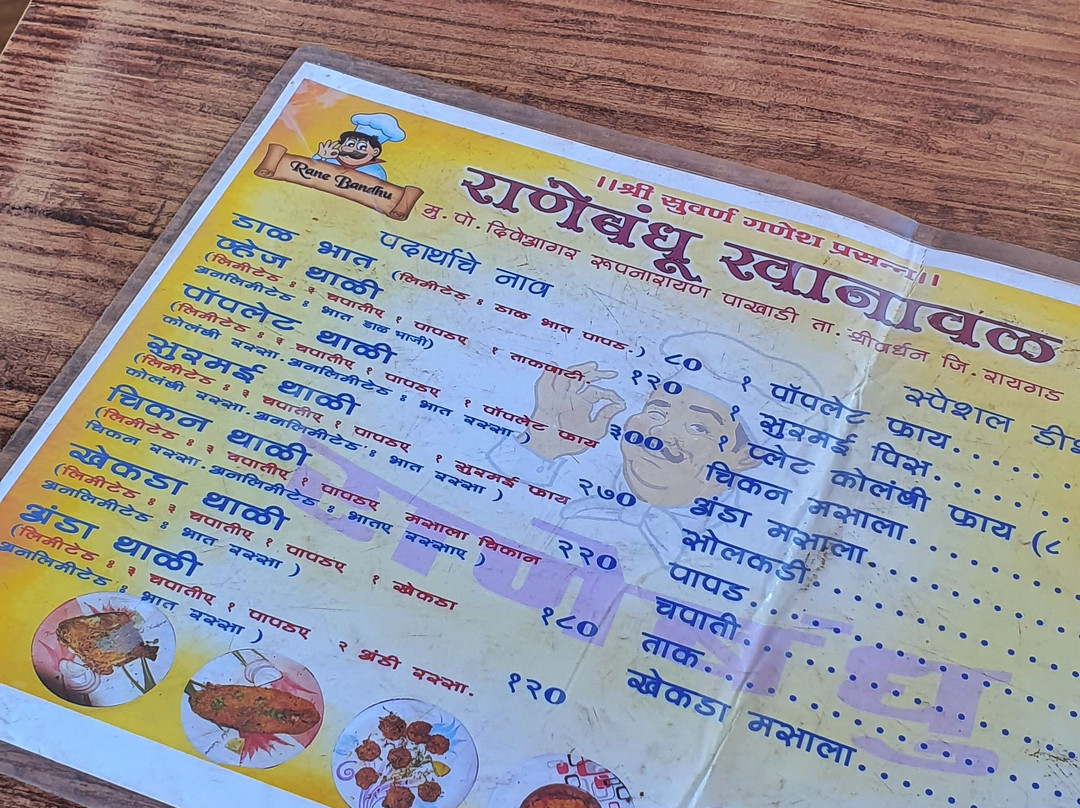 Rane Bandhu
।।श्री सुवर्ण गणेश प्रसन्न।।
राणेबंधू खानावळ
मु. पो. दिवेआगार रूपनारायण पाखाडी ता. श्रीवर्धन जि. रायगड
पदार्थाचे नाव
डाळ भात (लिमीटेड : डाळ भात पापड.) ८०
व्हेज थाळी
(लिमीटेड : ३ चपातीए १ पापडए १ ताकवाटी. १२०
अनलिमीटेड : भात डाळ भाजी)
पॉपलेट थाळी
(लिमीटेड : ३ चपातीए १ पापडए १ पॉपलेट फ्राय ३००
कोलंबी रस्सा.अनलिमीटेड : भात रस्सा )
सुरमई थाळी
(लिमीटेड : ३ चपातीए १ पापडए १ सुरमई फ्राय २७०
कोलंबी रस्सा.अनलिमीटेड : भात रस्सा )
चिकन थाळी
(लिमीटेड : ३ चपातीए १ पापडए मसाला चिकन २२०
चिकन रस्सा.अनलिमीटेड : भातए रस्साए )
खेकडा थाळी
(लिमीटेड : ३ चपातीए १ पापडए १ खेकडा १८०
अनलिमीटेड : भात रस्सा )
अंडा थाळी
(लिमीटेड : ३ चपातीए १ पापडए २ अंडी रस्सा. १२०
अनलिमीटेड : भात रस्सा )
स्पेशल
१ पॉपलेट फ्राय......
१ सुरमई पिस......
१ प्लेट कोलंबी फ्राय (८
चिकन मसाला........
अंडा मसाला........
सोलकडी
पापड........
चपाती........
ताक........
खेकडा मसाला........